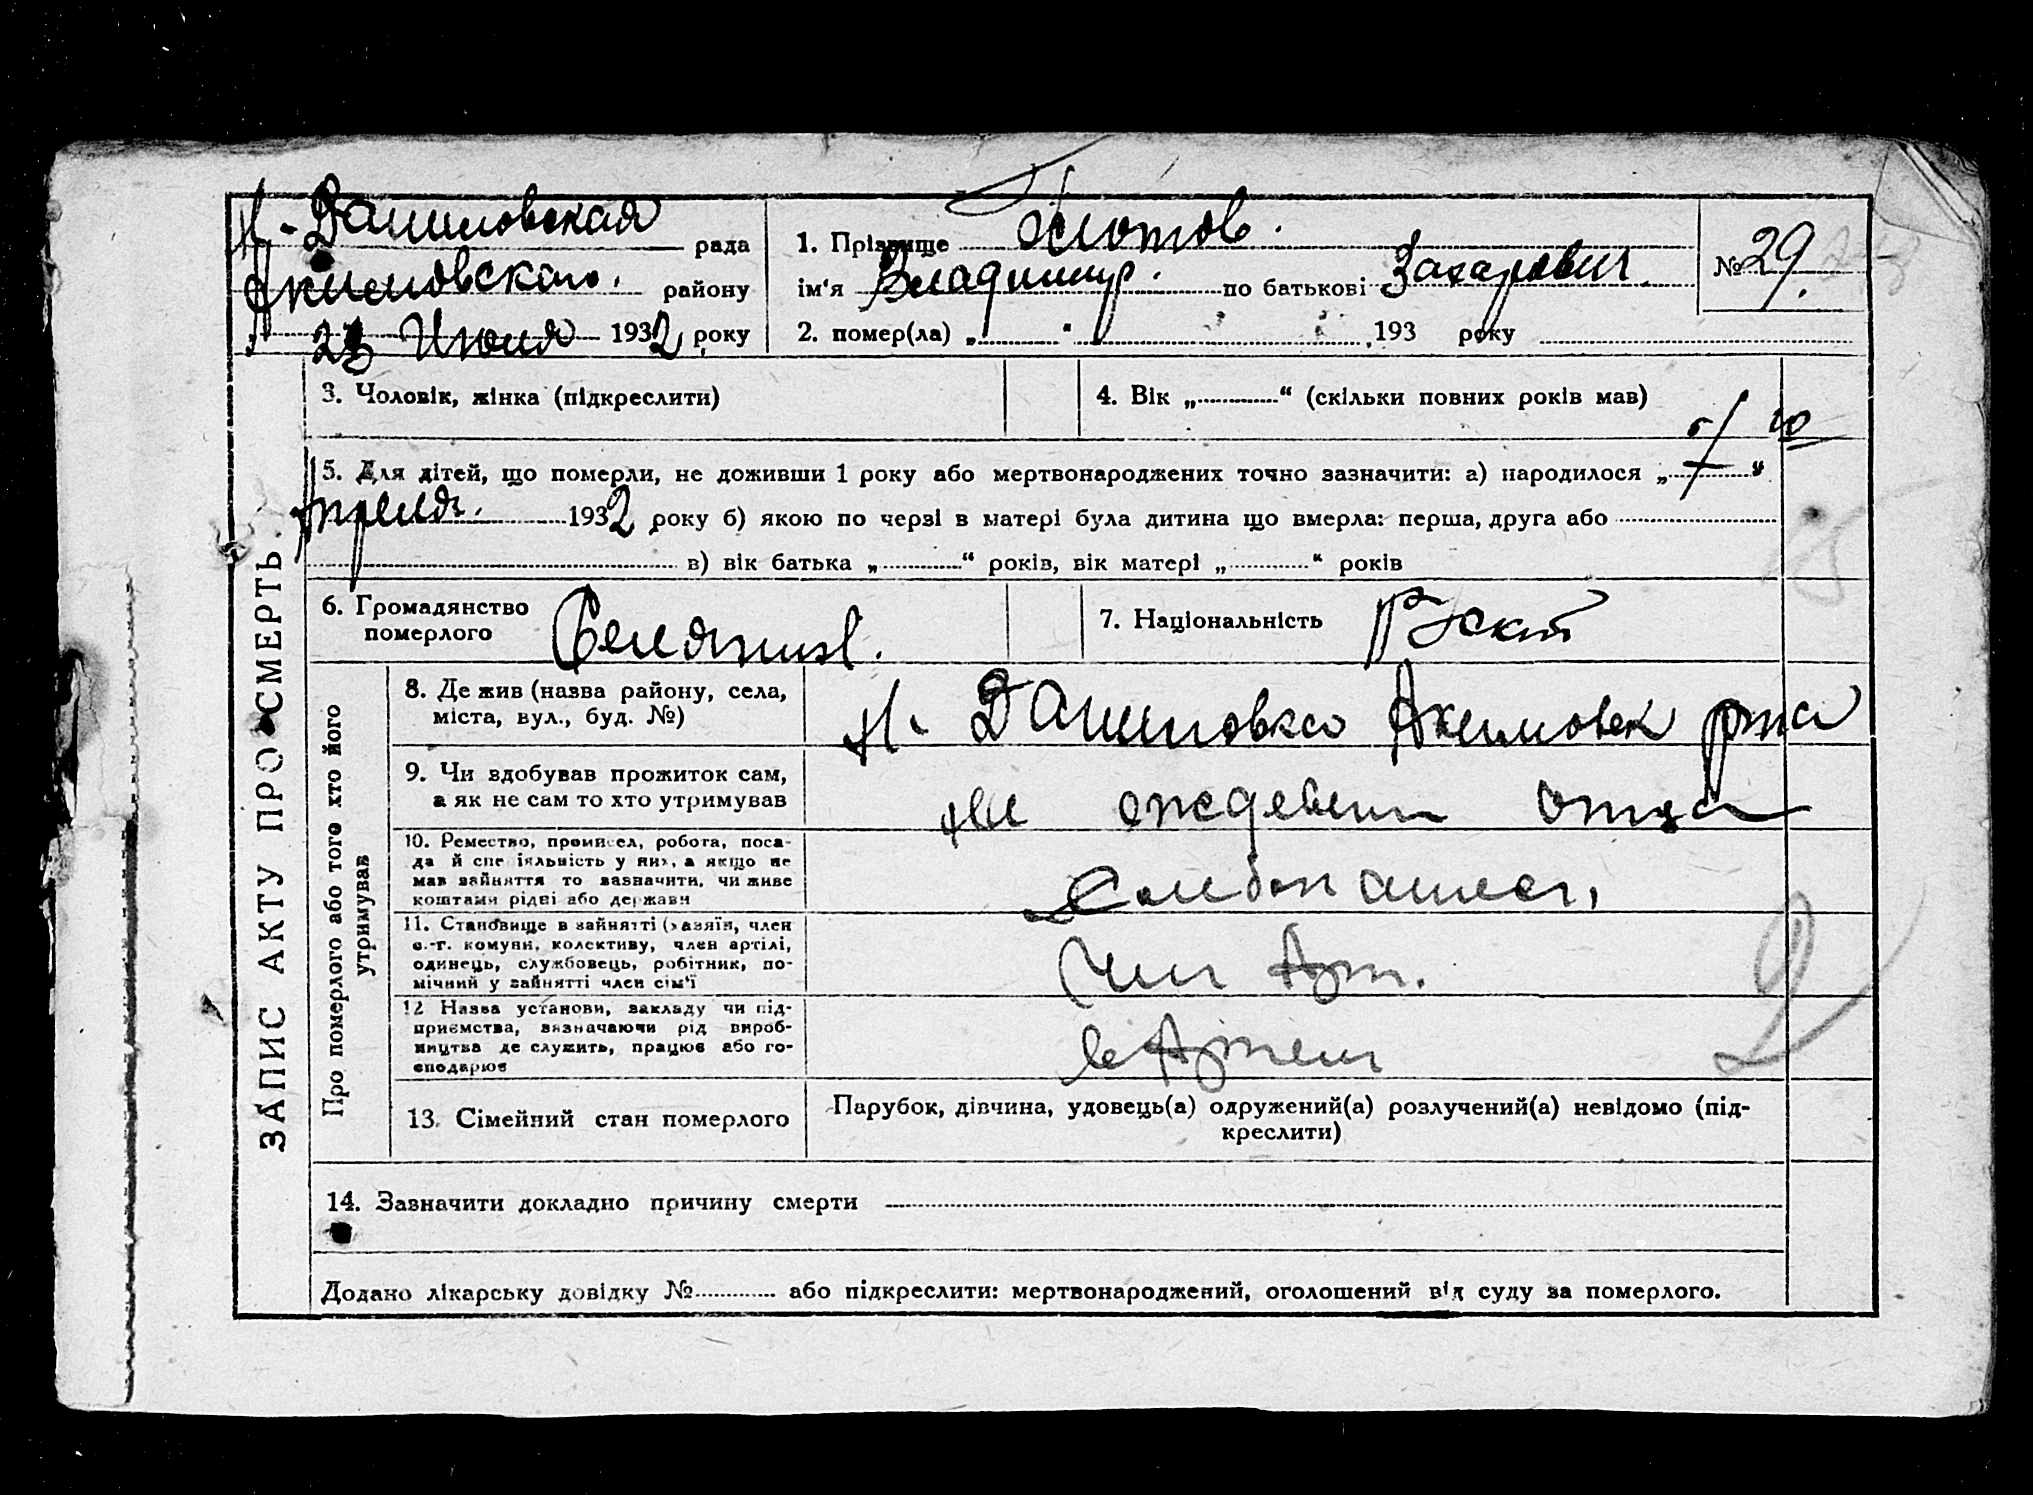 Н-Даниловская рада
Акимовского району
23 Июня 1932 року
1. Прізвище
ім'я Владимир. по батькові Захарович
2. помер(ла) „ “ 193 року
№ 29.
3. Чоловік, жінка (підкреслити)
4. Вік „ “ (скільки повних років мав)
5. Для дітей, що померли, не доживши 1 року або мертвонароджених точно зазначити: а) народилося „ “
Апреля. 1932 року б) якою по черзі в матері була дитина що вмерла: перша, друга або
в) вік батька „ “ років, вік матері „ “ років
6. Громадянство
померлого
Селянин.
7. Національність Руский
ЗАПИС АКТУ ПРО СМЕРТЬ
Про померлого або того хто його
утримував
8. Де жив (назва району, села,
міста, вул., буд. №)
Н-Даниловка Акимовск р-на
9. Чи здобував прожиток сам,
а як не сам то хто утримував
На иждевении отца
10. Ремество, промисел, робота, поса-
да й спеціяльність у них, а якщо не
мав зайняття то зазначити, чи живе
коштами рідні або держави
11. Становище в зайнятті (хазяїн, член
с.-г. комуни, колективу, член артілі,
одинець, службовець, робітник, по-
мічний у зайнятті член сім'ї
Член Арт.
12 Назва установи, закладу чи під-
приємства, зазначаючи рід вироб-
ництва де служить, працює або го-
сподарює
в Артели
13. Сімейний стан померлого
Парубок, дівчина, удовець(а) одружений(а) розлучений(а) невідомо (під-
креслити)
14. Зазначити докладно причину смерти
Додано лікарську довідку № або підкреслити: мертвонароджений, оголошений від суду за померлого.